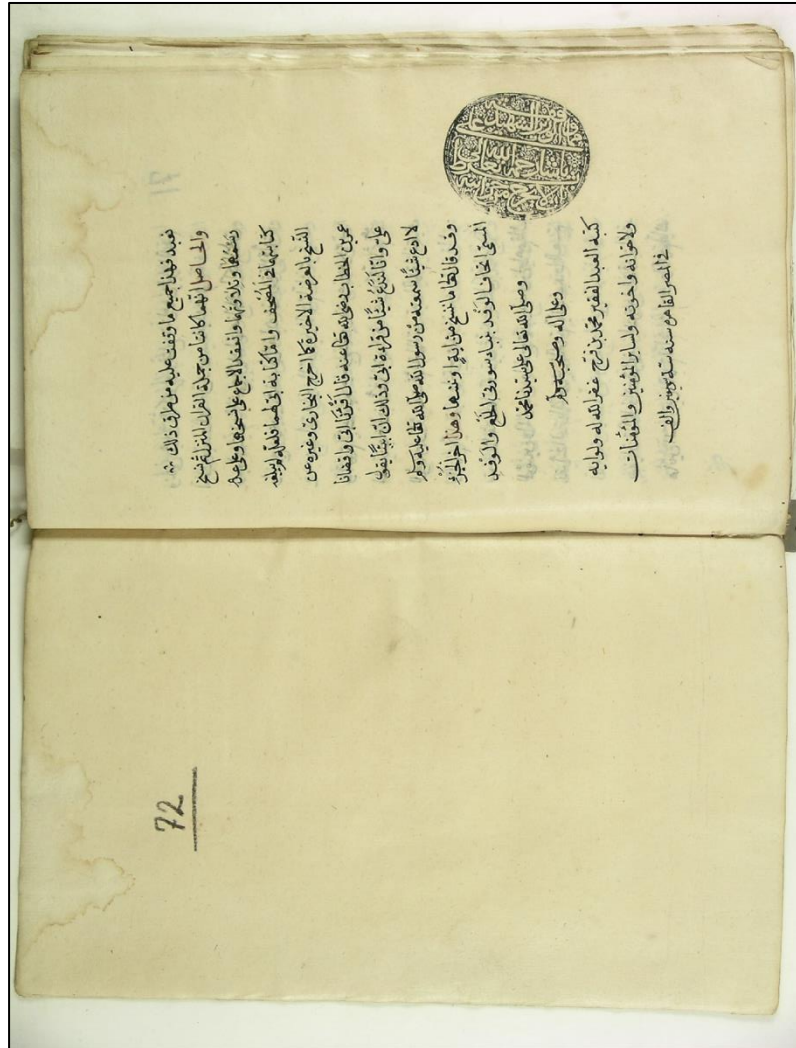 نعبد فهذا جميع ما وقفت عليه من طرق ذلك
والحاصل انهما كانتا من جملة القرآن المنزل ثم نسخ
رسمهما وتلاوتهما وانعقد الاجماع على نسخهما وعلى عدم
كتابتهما في المصحف واما كتابة ابي لهما فلعله لم يبلغه
النسخ بالعرضة الاخيرة كما اخرج البخاري وغيره عن
عمر بن الخطاب رضي الله تعالى عنه قال اقرؤنا ابي واقضانا
علي وانا لندع شيئا من قراءة ابي وذلك ان ابيا يقول
لا ادع شيئا سمعته من رسول الله صلى الله تعالى عليه وسلم
وقد قال تعالى ما ننسخ من اية او ننسها وهذا اخر الجزء
المسمى اتحاف الوفد بنباء سورتي الخلع والحفد
وصلى الله تعالى على سيدنا محمد
وعلى اله وصحبه وسلم
كتبه العبد الفقير محمد بن فتح غفر الله له ولوالديه
ولاخوانه واخوته ولساير المؤمنين والمؤمنات
في المصر القاهره سنه والف
72